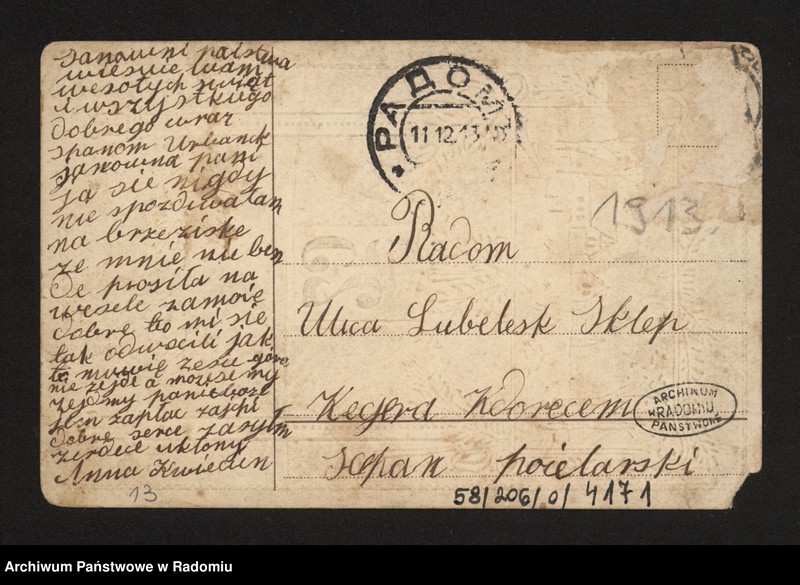 Sanowni palstwa
wiesuie wam
wesołych swiat
i wszystkiego
dobrego wraz
spanom Urbanck
sanowna pani
ja sie nigdy
nie spozdiwałam
na brzeziske
ze mnie nie ben
de prosiła na
wesele zamoie
dobre to mi sie
tak odwscili jak
to muwie zesie gòra
nie zejde a mozisemy
zejdmy
zapłac zajchi
dobre serce zasyłm
zerdece ukłony
Anna Kwiecien
13
РАДОМЪ
11.12.13
1913.
Radom
Ulica Lubelesk Sklep
Kegera Kdorecem
Scepan pocelarski
ARCHIWUM
W RADOMIU
PAŃSTWOWE
58/206/0/4171
Archiwum Państwowe w Radomiu